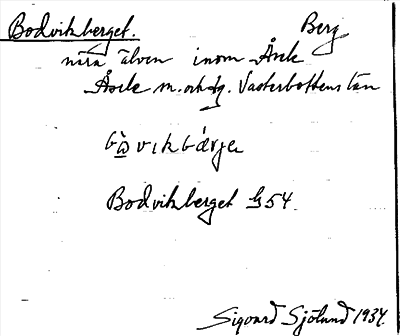 Bodvikberget. Berg
nära älven inom Åsele
Åsele m. och sg. Västerbottens län
Bodvikberget G54
Sigvard Sjölund 1934.